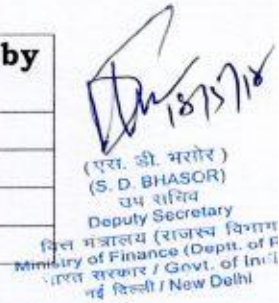 by
18/5/18
(एस. डी. भसोर)
(S. D. BHASOR)
उप सचिव
Deputy Secretary
वित्त मंत्रालय (राजस्व विभाग
Ministry of Finance (Deptt. of
भारत सरकार / Govt. of
नई दिल्ली / New Delhi